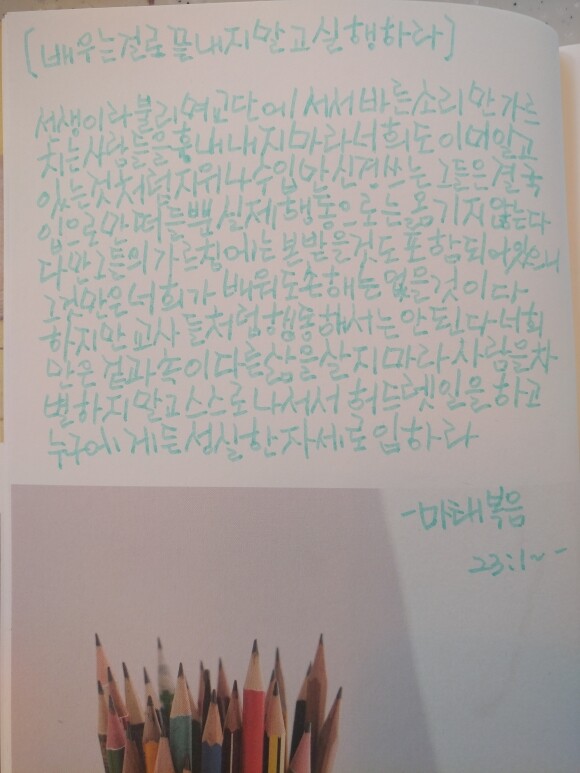 [배우는걸로 끝내지말고 실행하라]
선생이라 불리며 교단에 서서 바른소리만 가르
치는 사람들을 흉내내지 마라 너희도 이미 알고
있는것처럼 지위나 수입만 신경쓰는 그들은 결국
입으로만 떠들뿐 실제 행동으로는 옮기지 않는다
다만 그들의 가르침에는 본받을것도 포함되어있으니
그것만은 너희가 배워도 손해는 없을것이다
하지만 교사들처럼 행동해서는 안된다 너희
만은 겉과 속이 다른 삶을 살지마라 사람을 차
별하지 말고 스스로 나서서 허드렛일을 하고
누구에게든 성실한 자세로 임하라
-마태복음
23:1~-